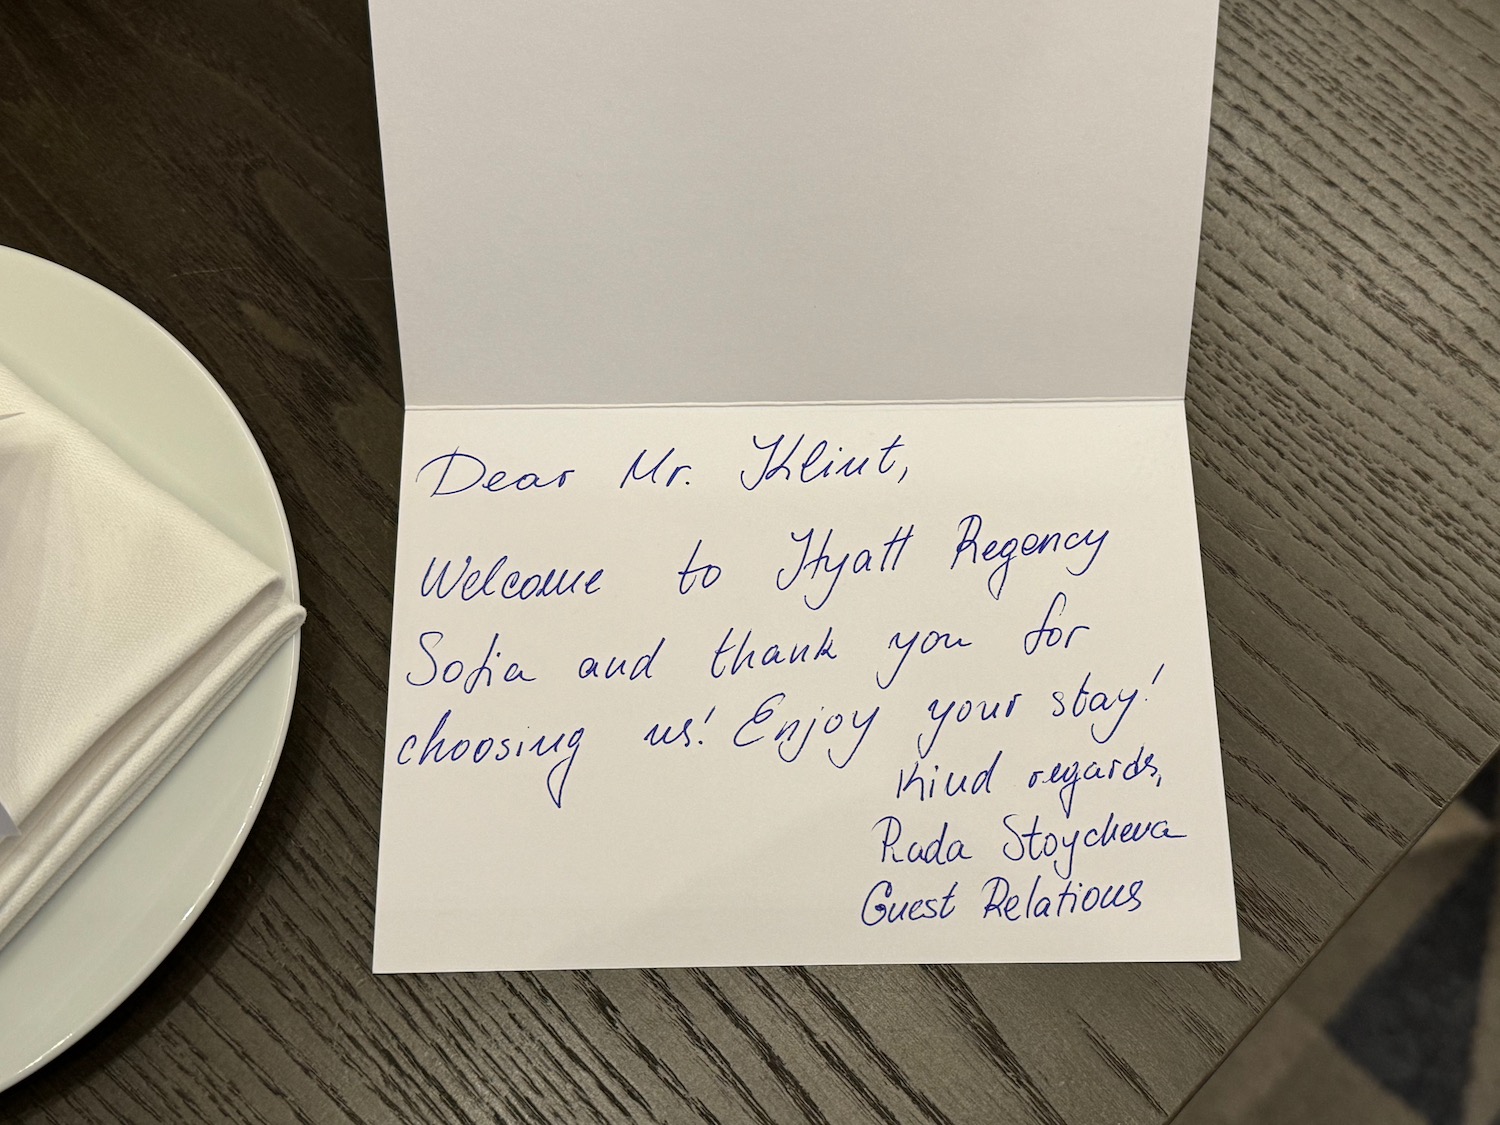 Dear Mr. Klint,
Welcome to Hyatt Regency
Sofia and thank you for
choosing us! Enjoy your stay!
Kind regards,
Rada Stoycheva
Guest Relations